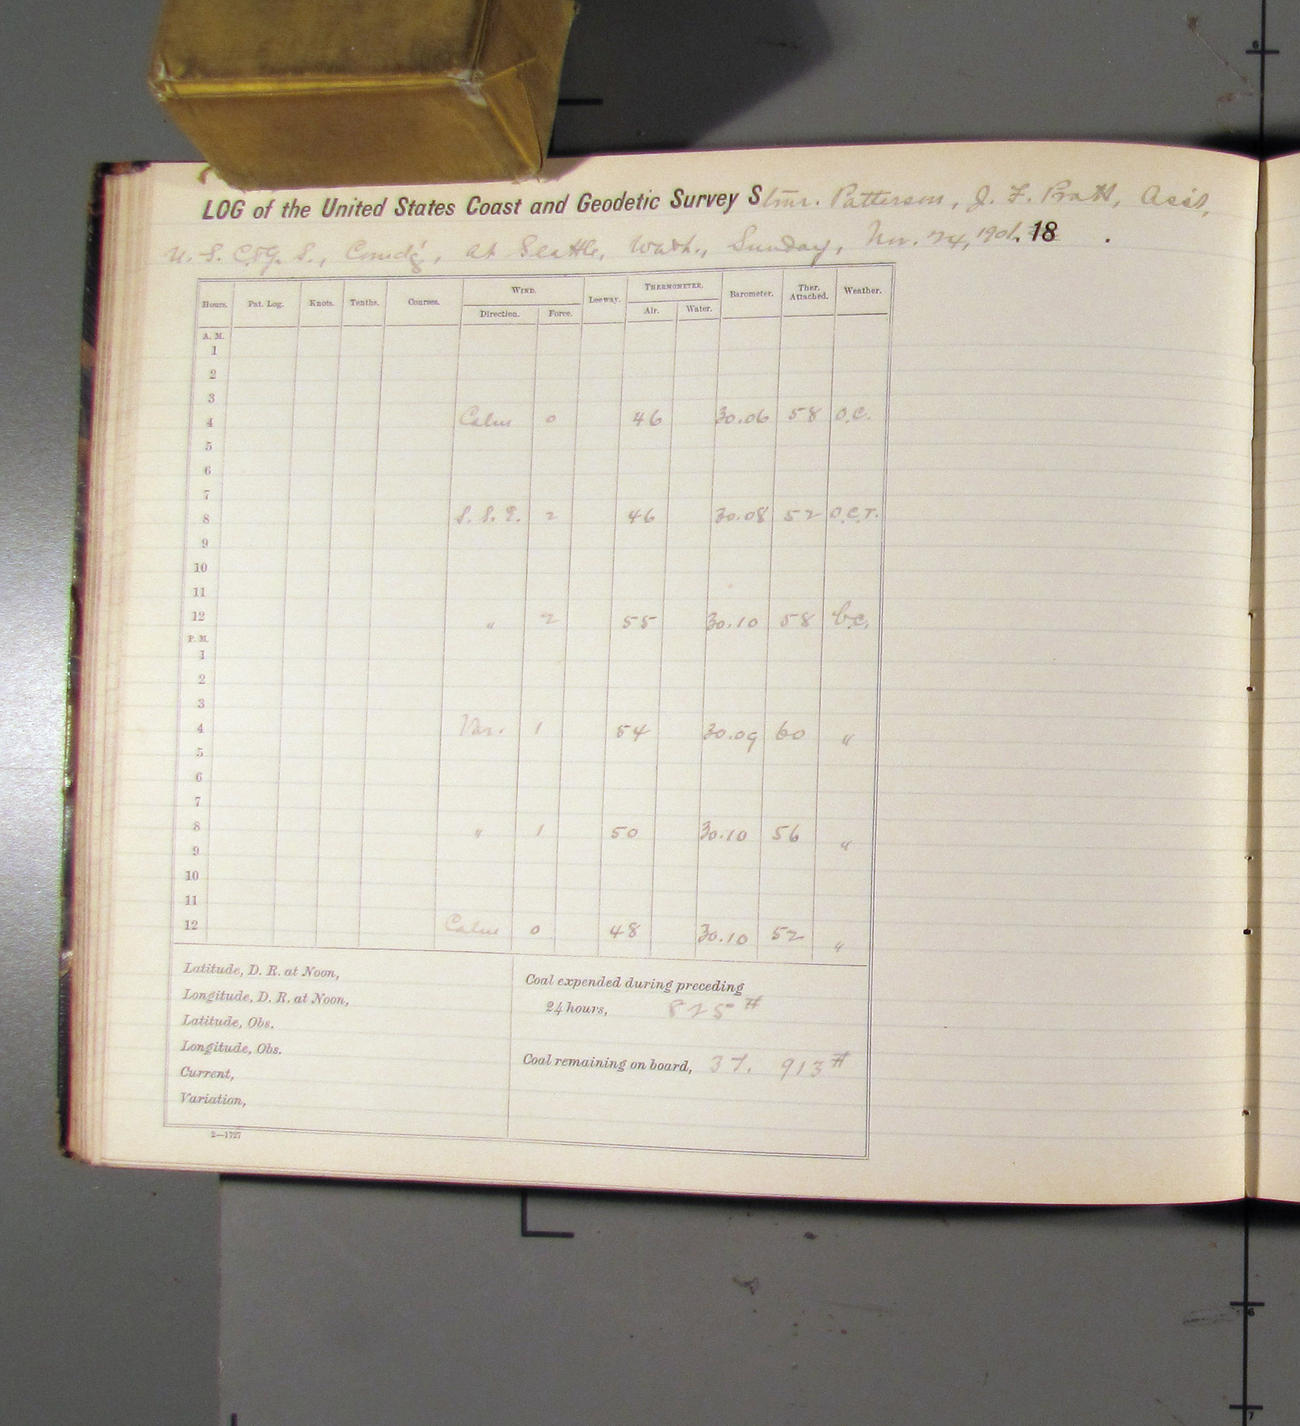 LOG of the United States Coast and Geodetic Survey Stmr. Patterson, J. F. Pratt, Ass't,
U. S. C. & G. S., Comd'g, at Seattle, Wash., Sunday, Nov. 24, 1901. 18 .
Hours. Pat. Log. Knots. Tenths. Courses. WIND. Leeway. THERMOMETER. Barometer. Ther. Attached. Weather.
Direction. Force. Air. Water.
A. M.
1
2
3
4 Calm 0 46 30.06 58 O.C.
5
6
7
8 S. S. E. 2 46 30.08 52 O.C.r.
9
10
11
12 " 2 55 30.10 58 b.c.
P. M.
1
2
3
4 Var. 1 54 30.09 60 "
5
6
7
8 " 1 50 30.10 56 "
9
10
11
12 Calm 0 48 30.10 52 "
Latitude, D. R. at Noon,
Longitude, D. R. at Noon,
Latitude, Obs.
Longitude, Obs.
Current,
Variation,
Coal expended during preceding
24 hours, 825 #
Coal remaining on board, 37. 913 #
2—1727
6
6
7